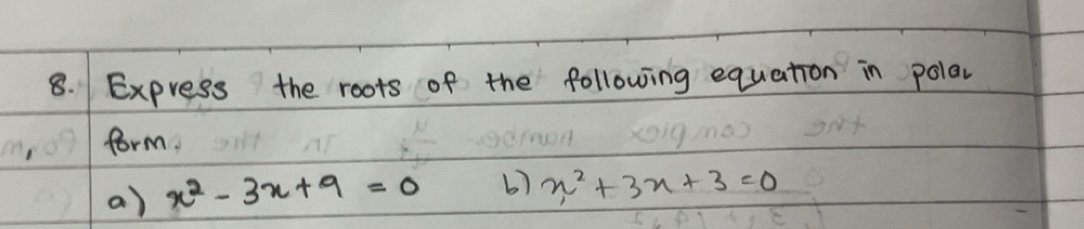 8. Express the roots of the following equation in polar
form.
a) x² - 3x + 9 = 0 b) x² + 3x + 3 = 0